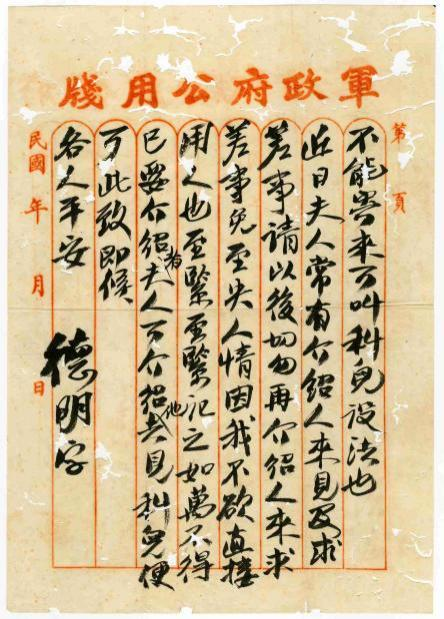 軍政府公用牋
第 頁
不能寄來可叫科兒設法也
近日夫人常有介紹人來見及求
差事請以後切勿再介紹人來求
差事免至失人情因我不欲直接
用人也至緊至緊記之如萬不得
已要介紹者夫人可介紹他去見科兒便
可此致即候
各人平安 德明字
民國 年 月 日